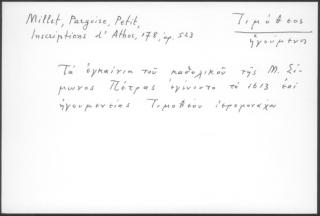 Millet, Pargoire, Petit,
Inscriptions d'Athos, 178, ap. 523
Τιμόθεος
ἡγούμενος
Τὰ ἐγκαίνια τοῦ καθολικοῦ τῆς Μ. Σί-
μωνος Πέτρας ἐγίνοντο τὸ 1613 ἐπὶ
ἡγουμενείας Τιμοθέου ἱερομονάχου